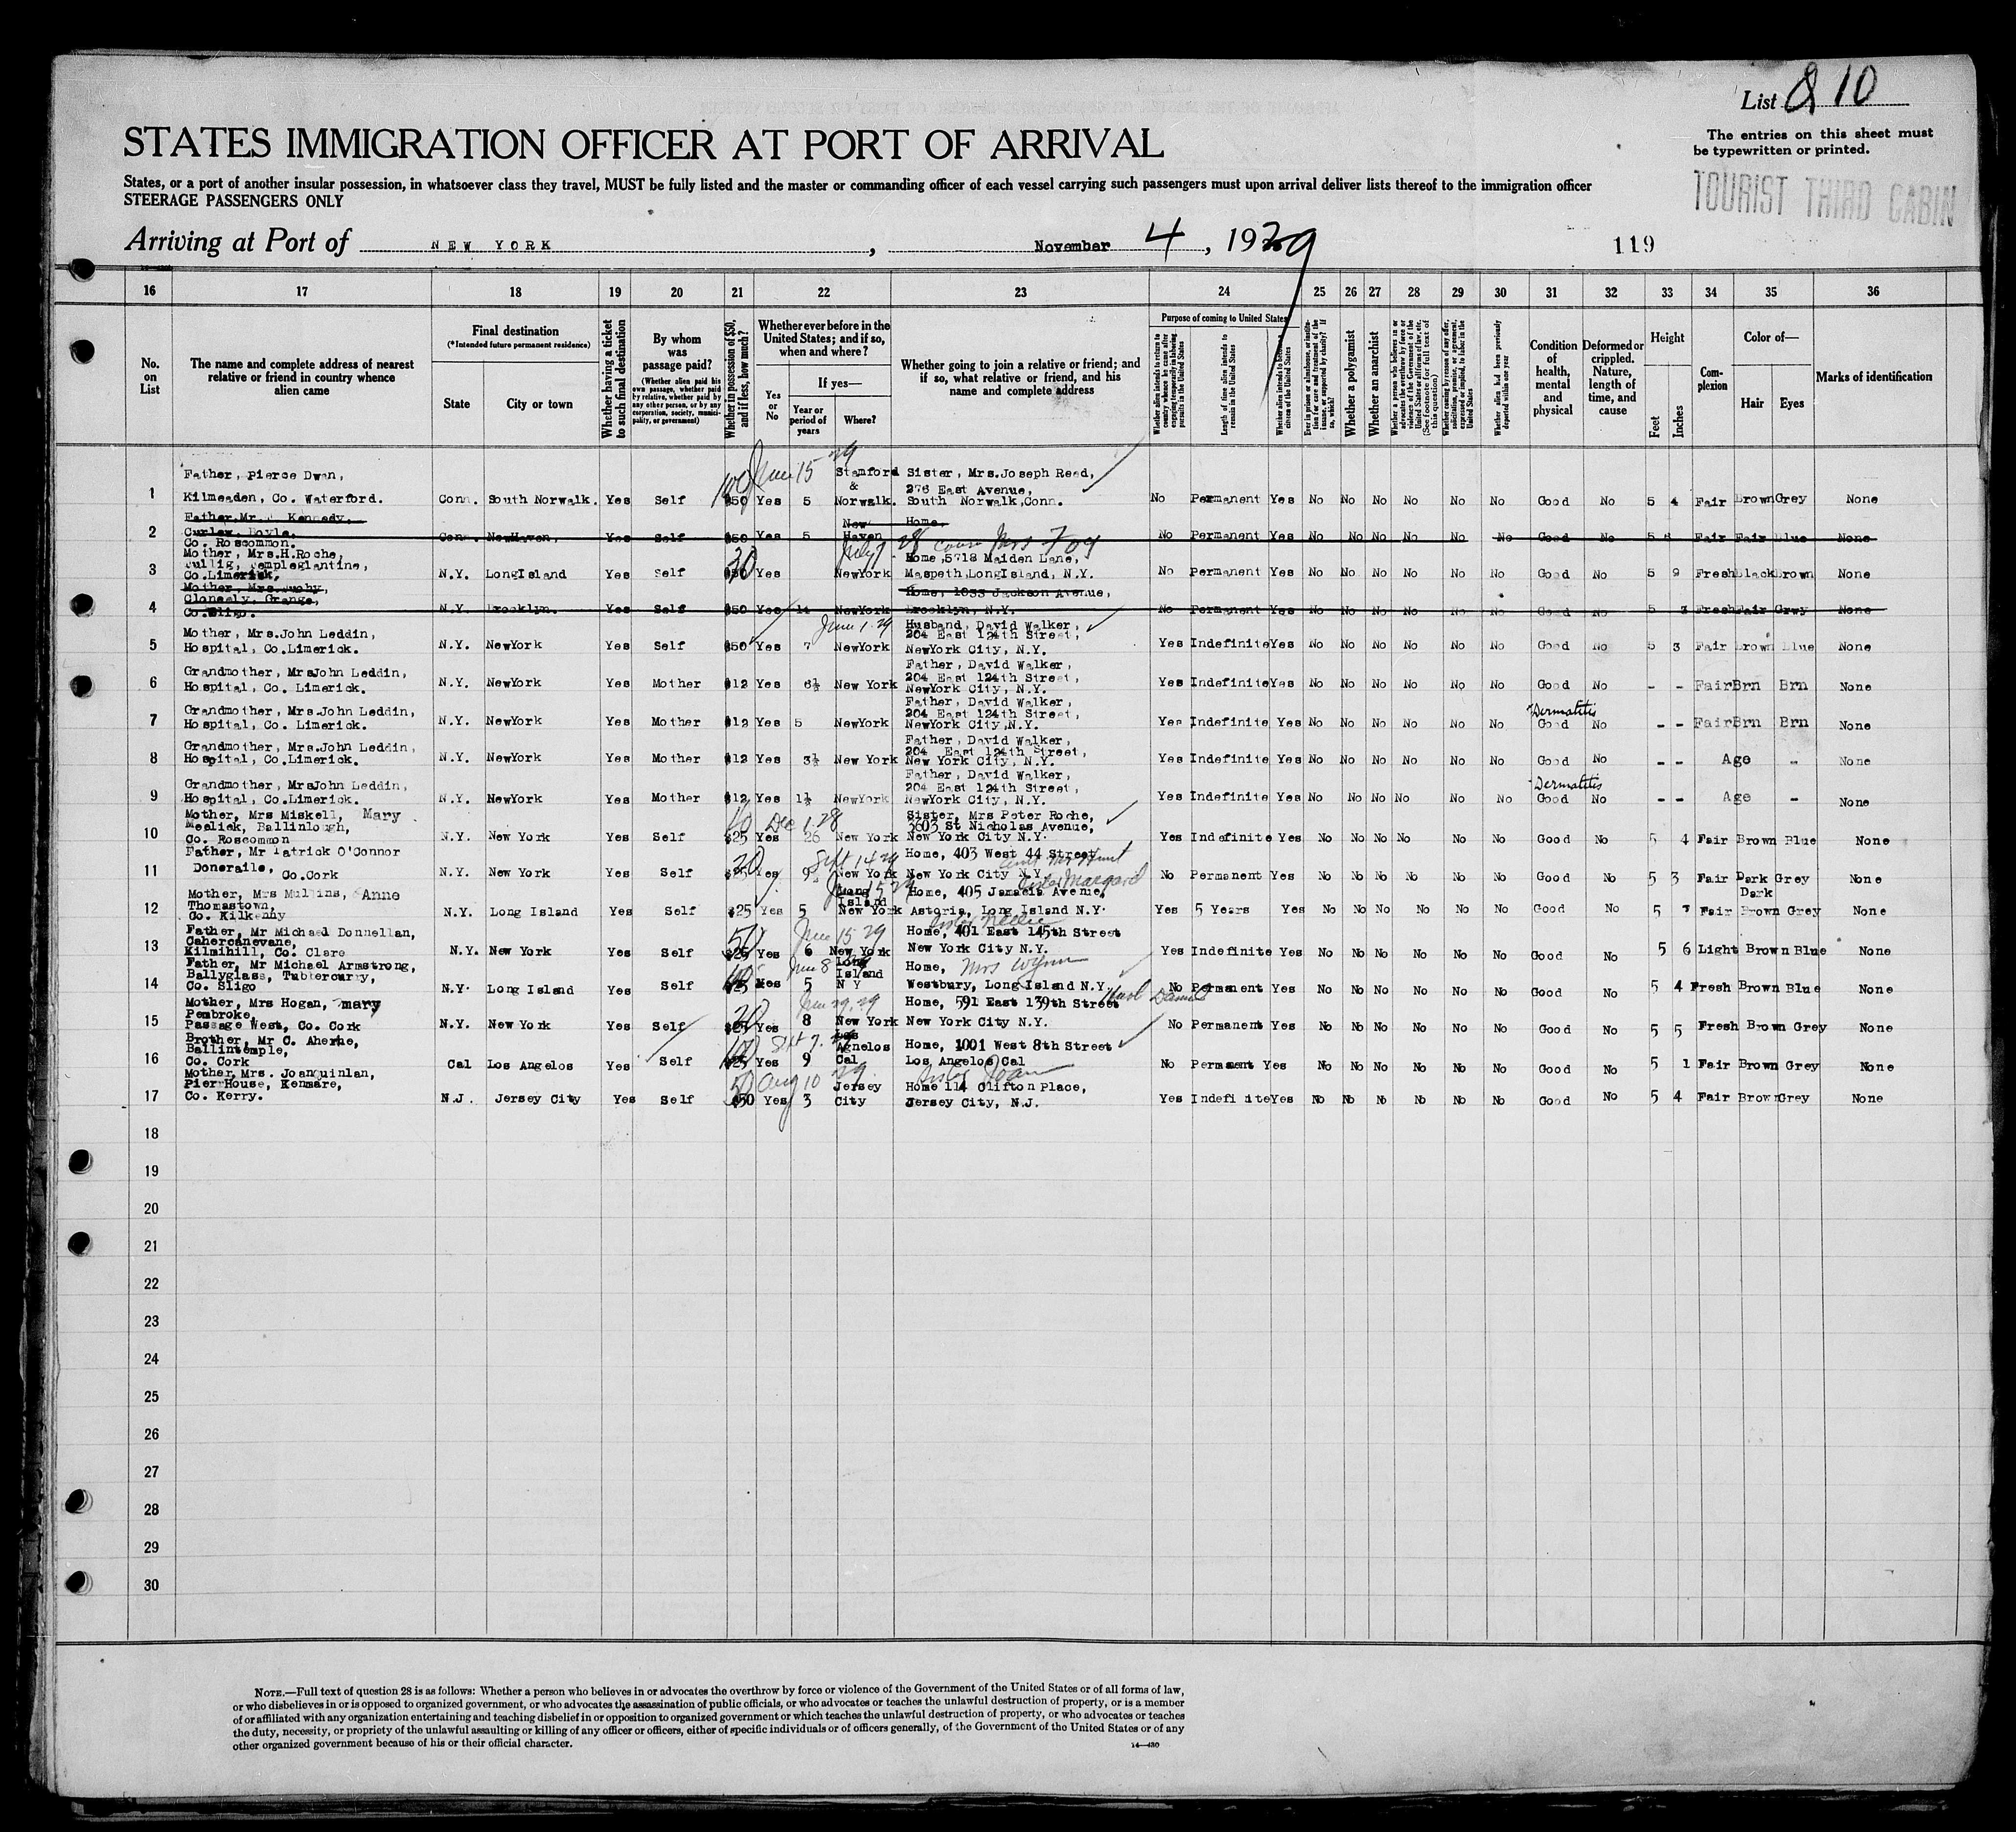 List 10
The entries on this sheet must
be typewritten or printed.
STATES IMMIGRATION OFFICER AT PORT OF ARRIVAL
States, or a port of another insular possession, in whatsoever class they travel, MUST be fully listed and the master or commanding officer of each vessel carrying such passengers must upon arrival deliver lists thereof to the immigration officer
STEERAGE PASSENGERS ONLY
TOURIST THIRD CABIN
Arriving at Port of NEW YORK, November 4, 1929
119
16 17 18 19 20 21 22 23 24 25 26 27 28 29 30 31 32 33 34 35 36
No. on List
The name and complete address of nearest relative or friend in country whence alien came
Final destination (*Intended future permanent residence)
State
City or town
Whether having a ticket to such final destination
By whom was passage paid?
(Whether alien paid his own passage, whether paid by relative, whether paid by any other person, or by any corporation, society, municipality, or government)
Whether in possession of $50, and if less, how much?
Whether ever before in the United States; and if so, when and where?
Yes or No
If yes—
Year or period of years
Where?
Whether going to join a relative or friend; and if so, what relative or friend, and his name and complete address
Purpose of coming to United States
Whether alien intends to return to country whence he came after engaging temporarily in laboring pursuits in the United States
Length of time alien intends to remain in the United States
Whether alien intends to become citizen of the United States
Whether a polygamist
Whether an anarchist
Whether alien had been previously deported within one year
Condition of health, mental and physical
Deformed or crippled. Nature, length of time, and cause
Height
Feet
Inches
Complexion
Color of—
Hair
Eyes
Marks of identification
Father, Pierce Dwan, Stamford Sister, Mrs.Joseph Reed,
& 276 East Avenue,
1 Kilmeaden, Co. Waterford. Conn. South Norwalk. Yes Self $50 Yes 5 Norwalk. South Norwalk,Conn. No Permanent Yes No No No No No No Good No 5 4 Fair Brown Grey None
June 15 29
Father,Mr. Kennedy, New Home,
2 Curlew, Boyle, Co. Roscommon. Conn. NewHaven, Yes Self $50 Yes 5 Haven No Permanent Yes No No No No No No Good No Fair Fair Blue None
Mother, Mrs.H.Roche,
3 Templeglantine, Co.Limerick, N.Y. LongIsland Yes Self Yes NewYork Home,5718 Maiden Lane, Maspeth,LongIsland, N.Y. No Permanent Yes No No No No No No Good No 5 9 Fresh Black Brown None
30 July 28
4 Grange, Co.Sligo. N.Y. Brooklyn. Yes Self $50 Yes NewYork Home, 1033 Jackson Avenue, Brooklyn, N.Y. No Permanent Yes No No No No No No Good No 5 Fresh Fair None
June 1.29
Mother, Mrs.John Leddin, Husband, David Walker,
204 East 124th Street,
5 Hospital, Co.Limerick. N.Y. NewYork Yes Self $50 Yes 7 NewYork NewYork City, N.Y. Yes Indefinite Yes No No No No No No Good No 5 3 Fair Brown Blue None
Grandmother, MrsJohn Leddin, Father, David Walker,
204 East 124th Street,
6 Hospital, Co. Limerick. N.Y. NewYork Yes Mother $12 Yes 6½ New York NewYork City, N.Y. Yes Indefinite Yes No No No No No No Good No - - Fair Brn Brn None
Grandmother, Mrs.John Leddin, Father, David Walker,
204 East 124th Street, Dermatitis
7 Hospital, Co. Limerick. N.Y. NewYork Yes Mother $12 Yes 5 NewYork NewYork City,N.Y. Yes Indefinite Yes No No No No No No Good No - - Fair Brn Brn None
Grandmother, Mrs.John Leddin, Father, David Walker,
204 East 124th Street,
8 Hospital, Co.Limerick. N.Y. NewYork Yes Mother $12 Yes 3½ New York New York City, N.Y. Yes Indefinite Yes No No No No No No Good No - - Age - None
Grandmother, MrsJohn Leddin, Father, David Walker,
204 East 124th Street, Dermatitis
9 Hospital, Co.Limerick. N.Y. NewYork Yes Mother $12 Yes 1½ NewYork NewYork City, N.Y. Yes Indefinite Yes No No No No No No Good No - - Age - None
Mother, Mrs Miskell, Mary Sister, Mrs Peter Roche,
Meelick, Ballinlough, 40 Dec 1.28 3603 St Nicholas Avenue,
10 Co. Roscommon N.Y. New York Yes Self $25 Yes 26 New York New York City N.Y. Yes Indefinite Yes No No No No No No Good No 5 4 Fair Brown Blue None
Father, Mr Patrick O'Connor 20 Sept 14 29 Home, 403 West 44 Street
11 Doneraile, Co.Cork N.Y. New York Yes Self $25 Yes 9 New York New York City N.Y. No Permanent Yes No No No No No No Good No 5 3 Fair Dark Grey None
Mother, Mrs Mullins, Anne Long Island Home, 405 Jamaica Avenue, Sister Margaret
12 Thomastown, Co. Kilkenny N.Y. Long Island Yes Self $25 Yes 5 New York Astoria, Long Island N.Y. Yes 5 Years Yes No No No No No No Good No 5 7 Fair Dark Brown Grey None
Father, Mr Michael Donnellan, 50 June 15 29 Sister Nellie Home, 401 East 145th Street
Cahercanevane,
13 Kilmihill, Co. Clare N.Y. New York Yes Self $25 Yes 6 New York New York City N.Y. Yes Indefinite Yes No No No No No No Good No 5 6 Light Brown Blue None
Father, Mr Michael Armstrong, June 8 Long Island Home, Mrs Wynn
Ballyglass, Tubbercurry,
14 Co. Sligo N.Y. Long Island Yes Self $25 Yes 5 N Y Westbury, Long Island N.Y. No Permanent Yes No No No No No No Good No 5 4 Fresh Brown Blue None
Mother, Mrs Hogan, mary 20 June 29.29 Home, 591 East 139th Street
Pembroke,
15 Passage West, Co. Cork N.Y. New York Yes Self $25 Yes 8 New York New York City N.Y. No Permanent Yes No No No No No No Good No 5 5 Fresh Brown Grey None
Brother, Mr C. Aherne, Sept 7. 29 Los Agnelos Home, 1001 West 8th Street
Ballintemple,
16 Co. Cork Cal Los Angelos Yes Self $25 Yes 9 Cal Los Angelos Cal No Permanent Yes No No No No No No Good No 5 1 Fair Brown Grey None
Mother,Mrs. Joanquinlan, 50 Aug 10 29 Sister Joan
PierrHouse, Kenmare, Jersey Home 114 Clifton Place,
17 Co. Kerry. N.J. Jersey City Yes Self $50 Yes 3 City Jersey City, N.J. Yes Indefinite Yes No No No No No No Good No 5 4 Fair Brown Grey None
18
19
20
21
22
23
24
25
26
27
28
29
30
NOTE.—Full text of question 28 is as follows: Whether a person who believes in or advocates the overthrow by force or violence of the Government of the United States or of all forms of law,
or who disbelieves in or is opposed to organized government, or who advocates the assassination of public officials, or who advocates or teaches the unlawful destruction of property, or is a member
of or affiliated with any organization entertaining and teaching disbelief in or opposition to organized government or which teaches the unlawful destruction of property, or who advocates or teaches
the duty, necessity, or propriety of the unlawful assaulting or killing of any officer or officers, either of specific individuals or of officers generally, of the Government of the United States or of any
other organized government because of his or their official character.
14—430